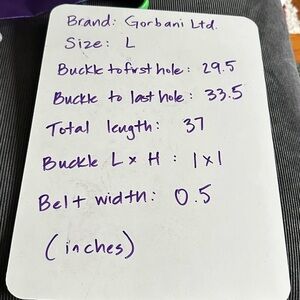 Brand: Gorbani Ltd.
Size: L
Buckle to first hole: 29.5
Buckle to last hole: 33.5
Total length: 37
Buckle L x H: 1x1
Belt width: 0.5
(inches)